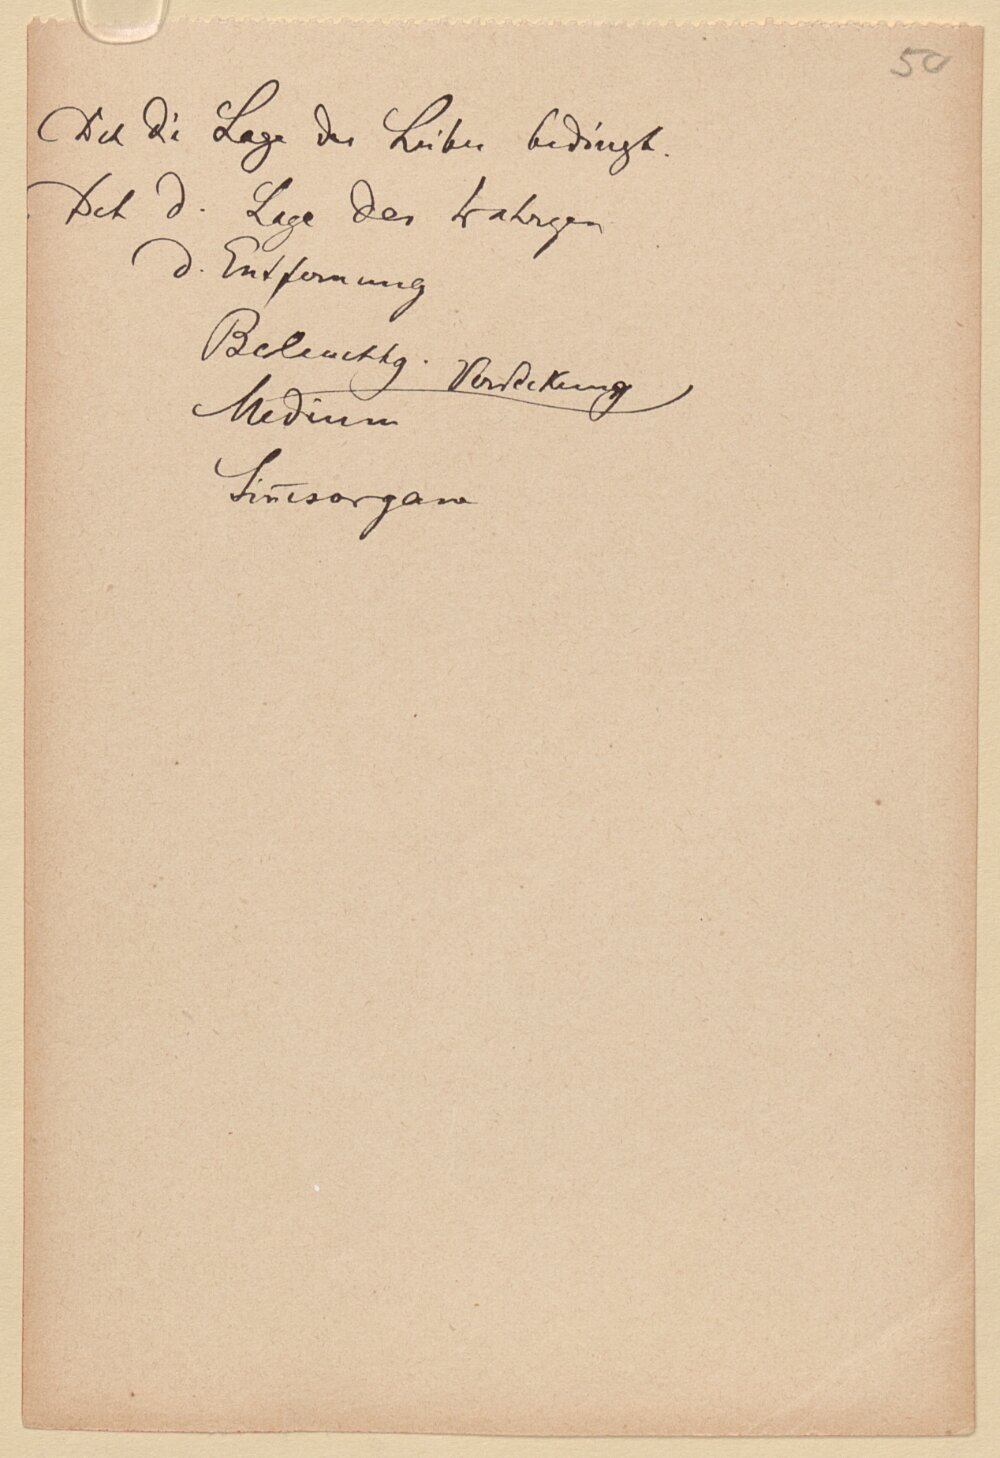 50
Dch die Lage des Leibes bedingt.
Dch d. Lage des Wahrgen
d. Entfernung
Beleuchtg. Verdeckung
Medium
Sin̄esorgane